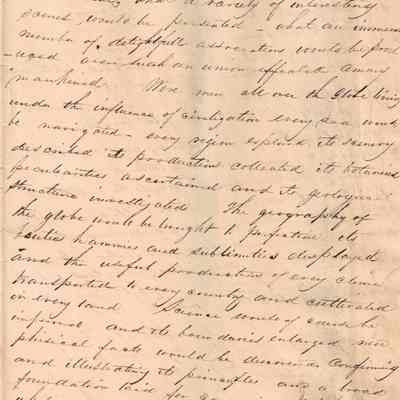 that a variety of interesting
scenes would be presented - what an immense
number of delightful associations would be prod
-uced were such an union effected among
mankind. Were men all over the globe living
under the influence of civilization every sea would
be navigated - every region explored its scenery
described its productions collected its botanical
peculiarities ascertained and its geological
structure investigated The geography of
the globe would be brought to perfection its
beauties harmonies and sublimities displayed
and the useful productions of every clime
transported to every country and cultivated
in every land Science would of course be
improved and its boundaries enlarged new
physical facts would be discovered confirming
and illustrating its principles and a broad
foundation laid for